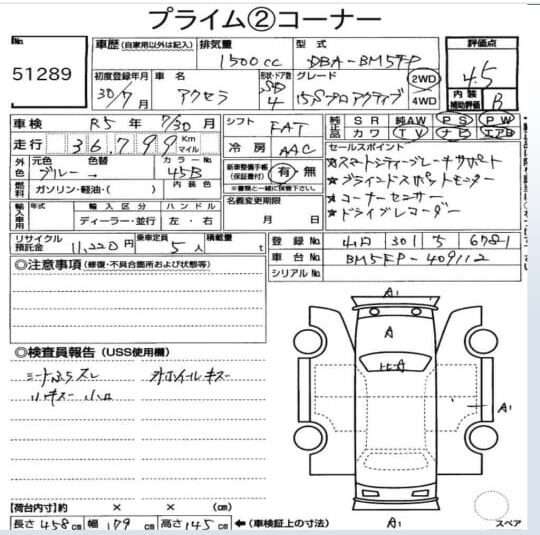 プライム②コーナー
No.
51289
車歴 (自家用以外は記入) 排気量 1500cc 型式 DBA-BM5FP
評価点 4.5
内装補助評価 B
初度登録年月 30/7月 車名 アクセラ 形状・ドア数 SD 4 グレード 15Sプロアクティブ 2WD 4WD
車検 R5年 7/30月 シフト FAT 純正品 SR 純AW PS PW
カワ TV ナビ エアB
走行 36,799 Km マイル 冷房 AAC
セールスポイント
★スマートシティブレーキサポート
★ブラインドスポットモニター
★コーナーセンサー
★ドライブレコーダー
外色 元色 ブルー 色替 → カラーNo. 45B
新車整備手帳(保証書付) 有・無
※書類と一緒に搬入
燃料 ガソリン・軽油・( ) 内装色
名義変更期限
月 日
輸入車用 年式 輸入区分 ハンドル
ディーラー・並行 左・右
リサイクル預託金 11,220円 乗車定員 5人 積載量 t
登録No. 301
車台No. BM5FP-409112
シリアルNo.
◎注意事項 (修復・不具合箇所および状態等)
◎検査員報告 (USS使用欄)
シートスレ ホイールキズ
小キズ 小凹
A1
A
A1
A1
スペア
【荷台内寸】約 × × (cm)
長さ 458cm 幅 179cm 高さ 145cm ←(車検証上の寸法)